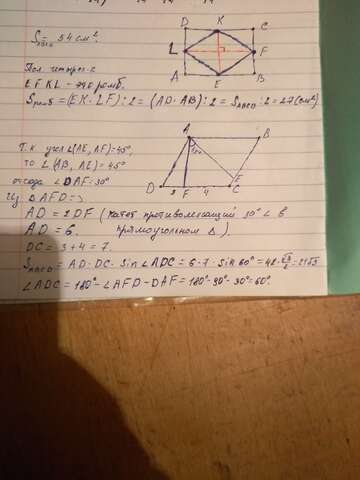 D K C
S ABCD = 54 см².
L F
A E B
Пол. четырех-к
EFKL - это ромб.
S ромб = (EK · LF) : 2 = (AD · AB) : 2 = S ABCD : 2 = 27 (см²)
A B
Т.к. угол ∠(AE, AF) = 45°,
то ∠(AB, AE) = 45°
отсюда ∠DAF = 30°
E
D 3 F 4 C
Из △AFD =>
AD = 2DF (катет противолежащий 30° ∠ в
AD = 6. прямоугольном △)
DC = 3 + 4 = 7.
S ABCD = AD · DC · Sin ∠ADC = 6 · 7 · Sin 60° = 42 · √3/2 = 21√3
∠ADC = 180° - ∠AFD - DAF = 180° - 90° - 30° = 60°.